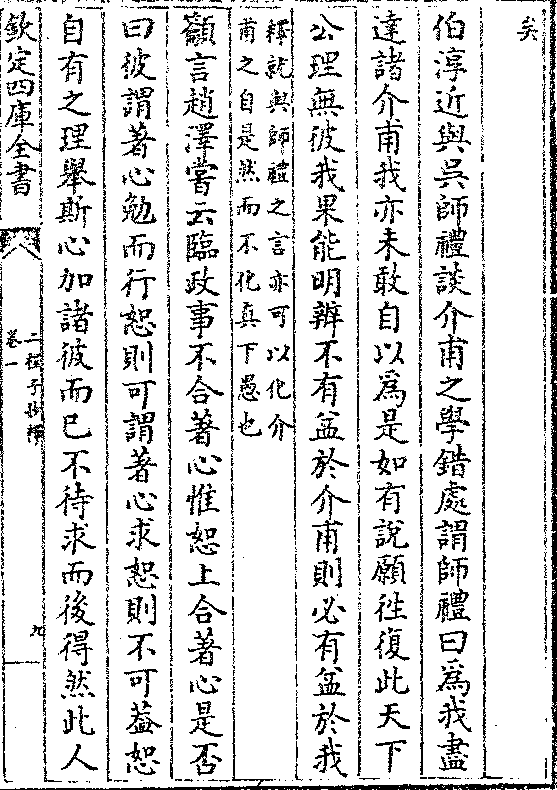 矣
伯淳近與吳師禮談介甫之學錯處謂師禮曰爲我盡
達諸介甫我亦未敢自以爲是如有說願徃復此天下
公理無彼我果能明辨不有益於介甫則必有益於我
釋就與師禮之言亦可以化介
甫之自是然而不化真下愚也
籲言趙澤嘗云臨政事不合著心惟恕上合著心是否
曰彼謂著心勉而行恕則可謂著心求恕則不可葢恕
自有之理舉斯心加諸彼而已不待求而後得然此人
欽定四庫全書
卷一
二程子抄釋
九